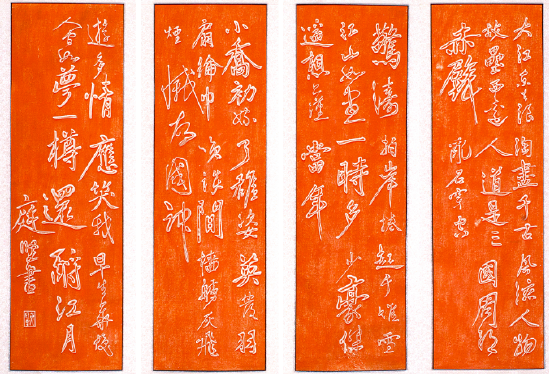 大江東去浪淘盡千古風流人物
故壘西邊人道是三國周郎
赤壁亂石穿空
驚濤拍岸捲起千堆雪
江山如畫一時多少豪傑
遙想公瑾當年
小喬初嫁了雄姿英發羽
扇綸巾笑談間檣艣灰飛
煙滅故國神
遊多情應笑我早生華髮
如夢一樽還酹江月
庭堅書